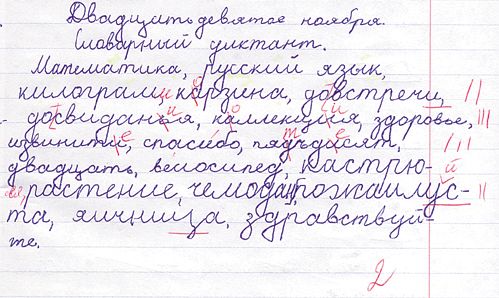 Двадцать девятое ноября.
Словарный диктант.
Математика, русский язык,
килограми, карзина, довстречи,
досвиданья, каллекция, здоровье,
извинити, спасибо, пядъдисят,
двадцать, велосипед, кастрю-
ля, растение, чемодан, пожаилус-
та, яичница, здравствуй-
те.
2